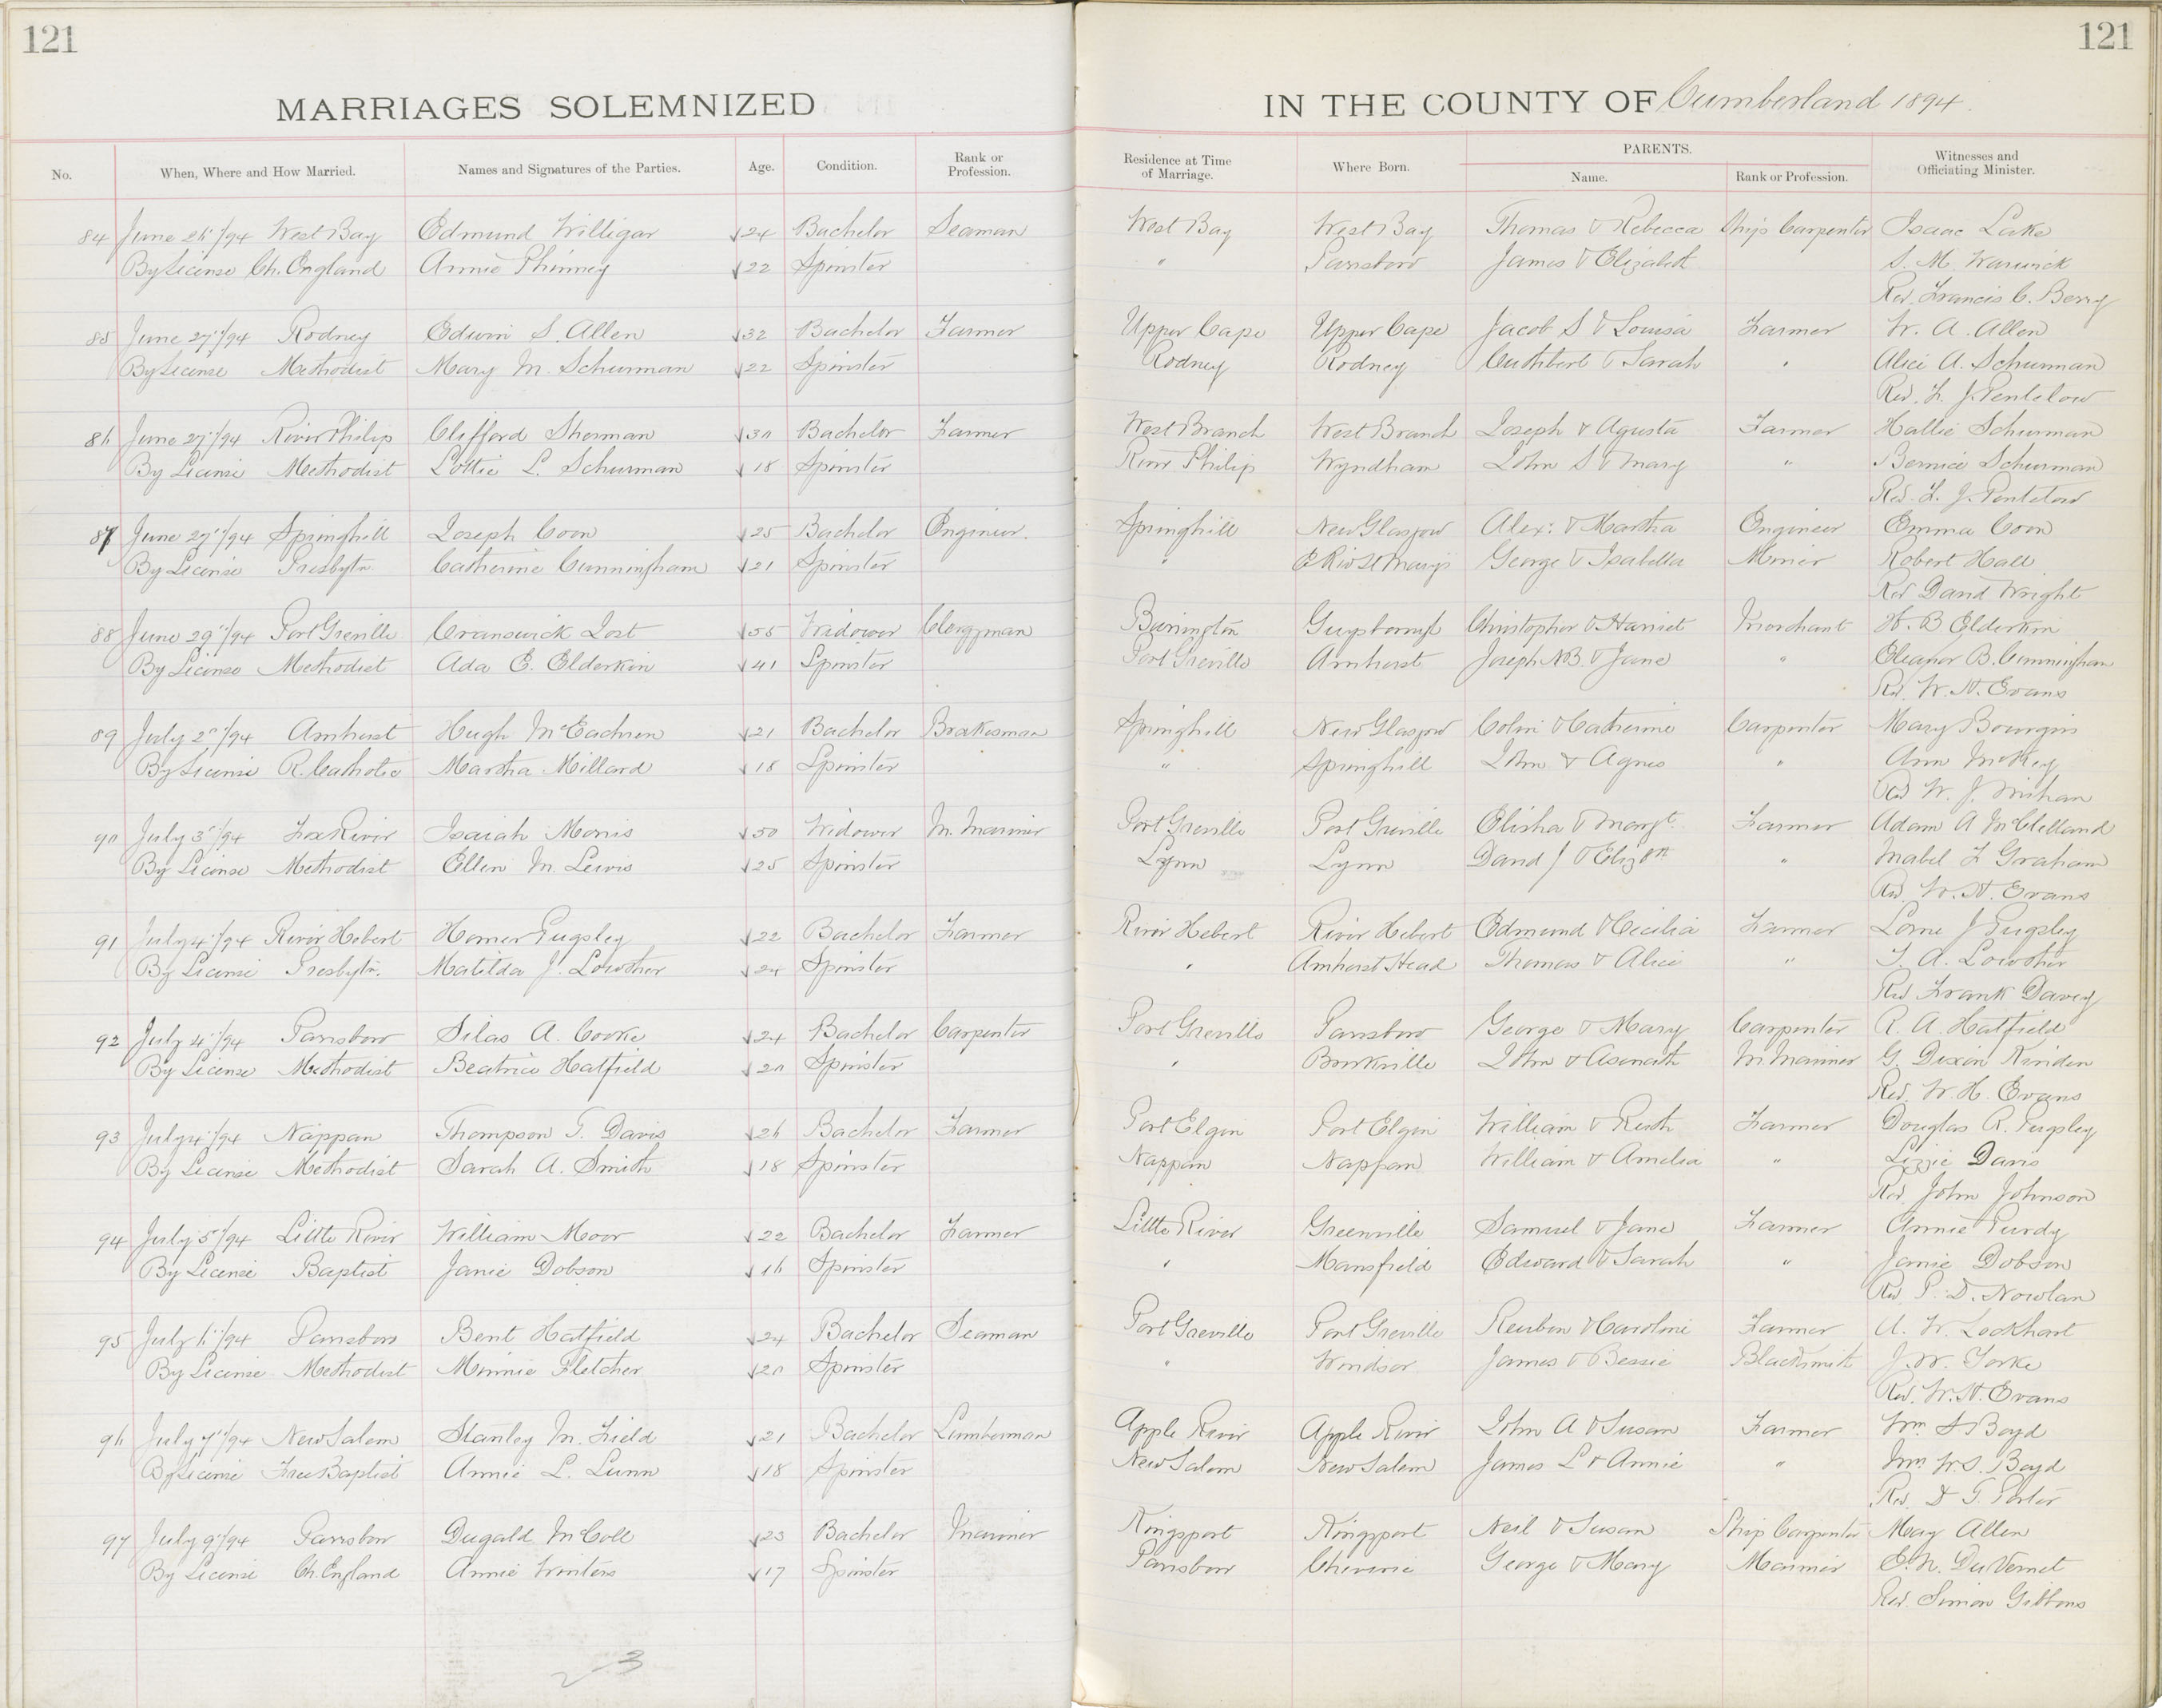 121
121
MARRIAGES SOLEMNIZED
IN THE COUNTY OF Cumberland 1894
No. When, Where and How Married. Names and Signatures of the Parties. Age. Condition. Rank or Profession. Residence at Time of Marriage. Where Born. PARENTS. Name. Rank or Profession. Witnesses and Officiating Minister.
84 June 26"/94 West Bay Edmund Willigar 24 Bachelor Seaman West Bay West Bay Thomas & Rebecca Ship Carpenter Isaac Lake
By License Ch. England Annie Phinney 22 Spinster " Parrsboro James & Elizabet S. M. Warwick
Rev. Francis C. Berry
85 June 27"/94 Rodney Edwin S. Allen 32 Bachelor Farmer Upper Cape Upper Cape Jacob S & Louisa Farmer W. A. Allen
By License Methodist Mary M. Schurman 22 Spinster Rodney Rodney Cuthbert & Sarah " Alice A. Schurman
Rev. L. J. Pentelow
86 June 27"/94 River Philip Clifford Sherman 30 Bachelor Farmer West Branch West Branch Joseph & Agusta Farmer Hallie Schurman
By License Methodist Lottie L. Schurman 18 Spinster River Philip Wyndham John S & Mary " Bernice Schurman
Rev. L. J. Pentelow
87 June 27"/94 Springhill Joseph Coon 25 Bachelor Engineer. Springhill New Glasgow Alex: & Martha Engineer Emma Coon
By License Presbytn. Catherine Cunningham 21 Spinster " E Riv St Marys George & Isabella Miner Robert Hall
Rev David Wright
88 June 29"/94 Port Greville Cranswick Jost 55 Widower Clergyman Barrington Guysborough Christopher & Harriet Merchant H. B Elderkin
By License Methodist Ada E. Elderkin 41 Spinster Port Greville Amherst Joseph N.B. & Jane " Eleanor B. Cunningham
Rev. W. H. Evans
89 July 2"/94 Amherst Hugh McEachren 21 Bachelor Brakesman Springhill New Glasgow Colin & Catherine Carpenter Mary Bourgois
By License R. Catholic Martha Millard 18 Spinster " Springhill John & Agnes " Ann McKey
Rev W. J. Mihan
90 July 3"/94 Fox River Isaiah Morris 50 Widower M. Mariner Port Greville Port Greville Elisha & Margt. Farmer Adam A McClelland
By License Methodist Ellen M. Lewis 25 Spinster Lynn Lynn David J & Elizbth " Mabel F Graham
Rev W. H. Evans
91 July 4"/94 River Hebert Homer Pugsley 22 Bachelor Farmer River Hebert River Hebert Edmund & Cecilia Farmer Lorne J Pugsley
By License Presbytn. Matilda J. Lowther 24 Spinster " Amherst Head Thomas & Alice " T. A. Lowther
Rev Frank Davey
92 July 4"/94 Parrsboro Silas A. Cooke 24 Bachelor Carpenter Port Greville Parrsboro George & Mary Carpenter R. A. Hatfield
By License Methodist Beatrice Hatfield 20 Spinster " Brookville John & Asenath M. Mariner G. Dixon Rinden
Rev. W. H. Evans
93 July 4"/94 Nappan Thompson T. Davis 26 Bachelor Farmer Port Elgin Port Elgin William & Ruth Farmer Douglas R. Pugsley
By License Methodist Sarah A. Smith 18 Spinster Nappan Nappan William & Amelia " Lizzie Davis
Rev John Johnson
94 July 5"/94 Little River William Moor 22 Bachelor Farmer Little River Greenville Samuel & Jane Farmer Annie Purdy
By License Baptist Janie Dobson 16 Spinster " Mansfield Edward & Sarah " Janie Dobson
Rev P. D. Nowlan
95 July 6"/94 Parrsboro Bent Hatfield 24 Bachelor Seaman Port Greville Port Greville Reuben & Caroline Farmer A. W. Lockhart
By License Methodist Minnie Fletcher 20 Spinster " Windsor James & Bessie Blacksmith J. W. Yorke
Rev. W. H. Evans
96 July 7"/94 New Salem Stanley M. Field 21 Bachelor Lumberman Apple River Apple River John A & Susan Farmer Wm. S Boyd
By License Free Baptist Annie L. Lunn 18 Spinster New Salem New Salem James L & Annie " Mrs. W. S. Boyd
Rev. D T. Porter
97 July 9"/94 Parrsboro Dugald McColl 23 Bachelor Mariner Kingsport Kingsport Neil & Susan Ship Carpenter May Allen
By License Ch. England Annie Winters 17 Spinster Parrsboro Cheverie George & Mary Mariner E. N. DuVernet
Rev. Simon Gibbons
23